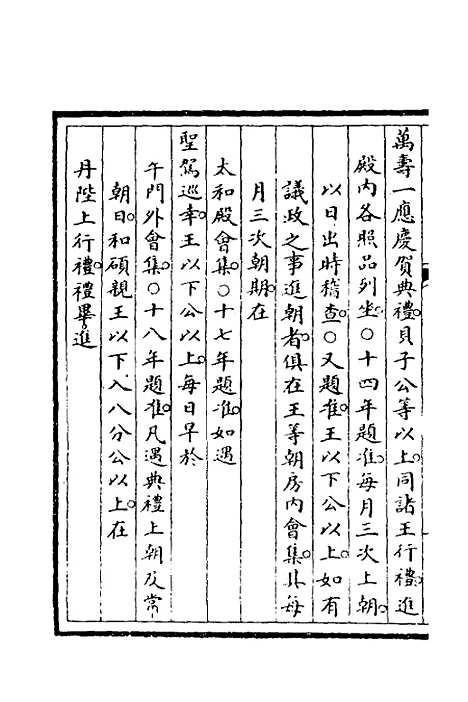 萬壽一應慶賀典禮。貝子公等以上。同諸王行禮。進
殿內各照品列坐。○十四年題准。每月三次上朝。
以日出時稽查。○又題准。王以下公以上。如有
議政之事進朝者。俱在王等朝房內會集。其每
月三次朝期。在
太和殿會集。○十七年題准。如遇
聖駕巡幸。王以下公以上。每日早於
午門外會集。○十八年題准。凡遇典禮上朝及常
朝日。和碩親王以下入八分公以上。在
丹陛上行禮。禮畢。進